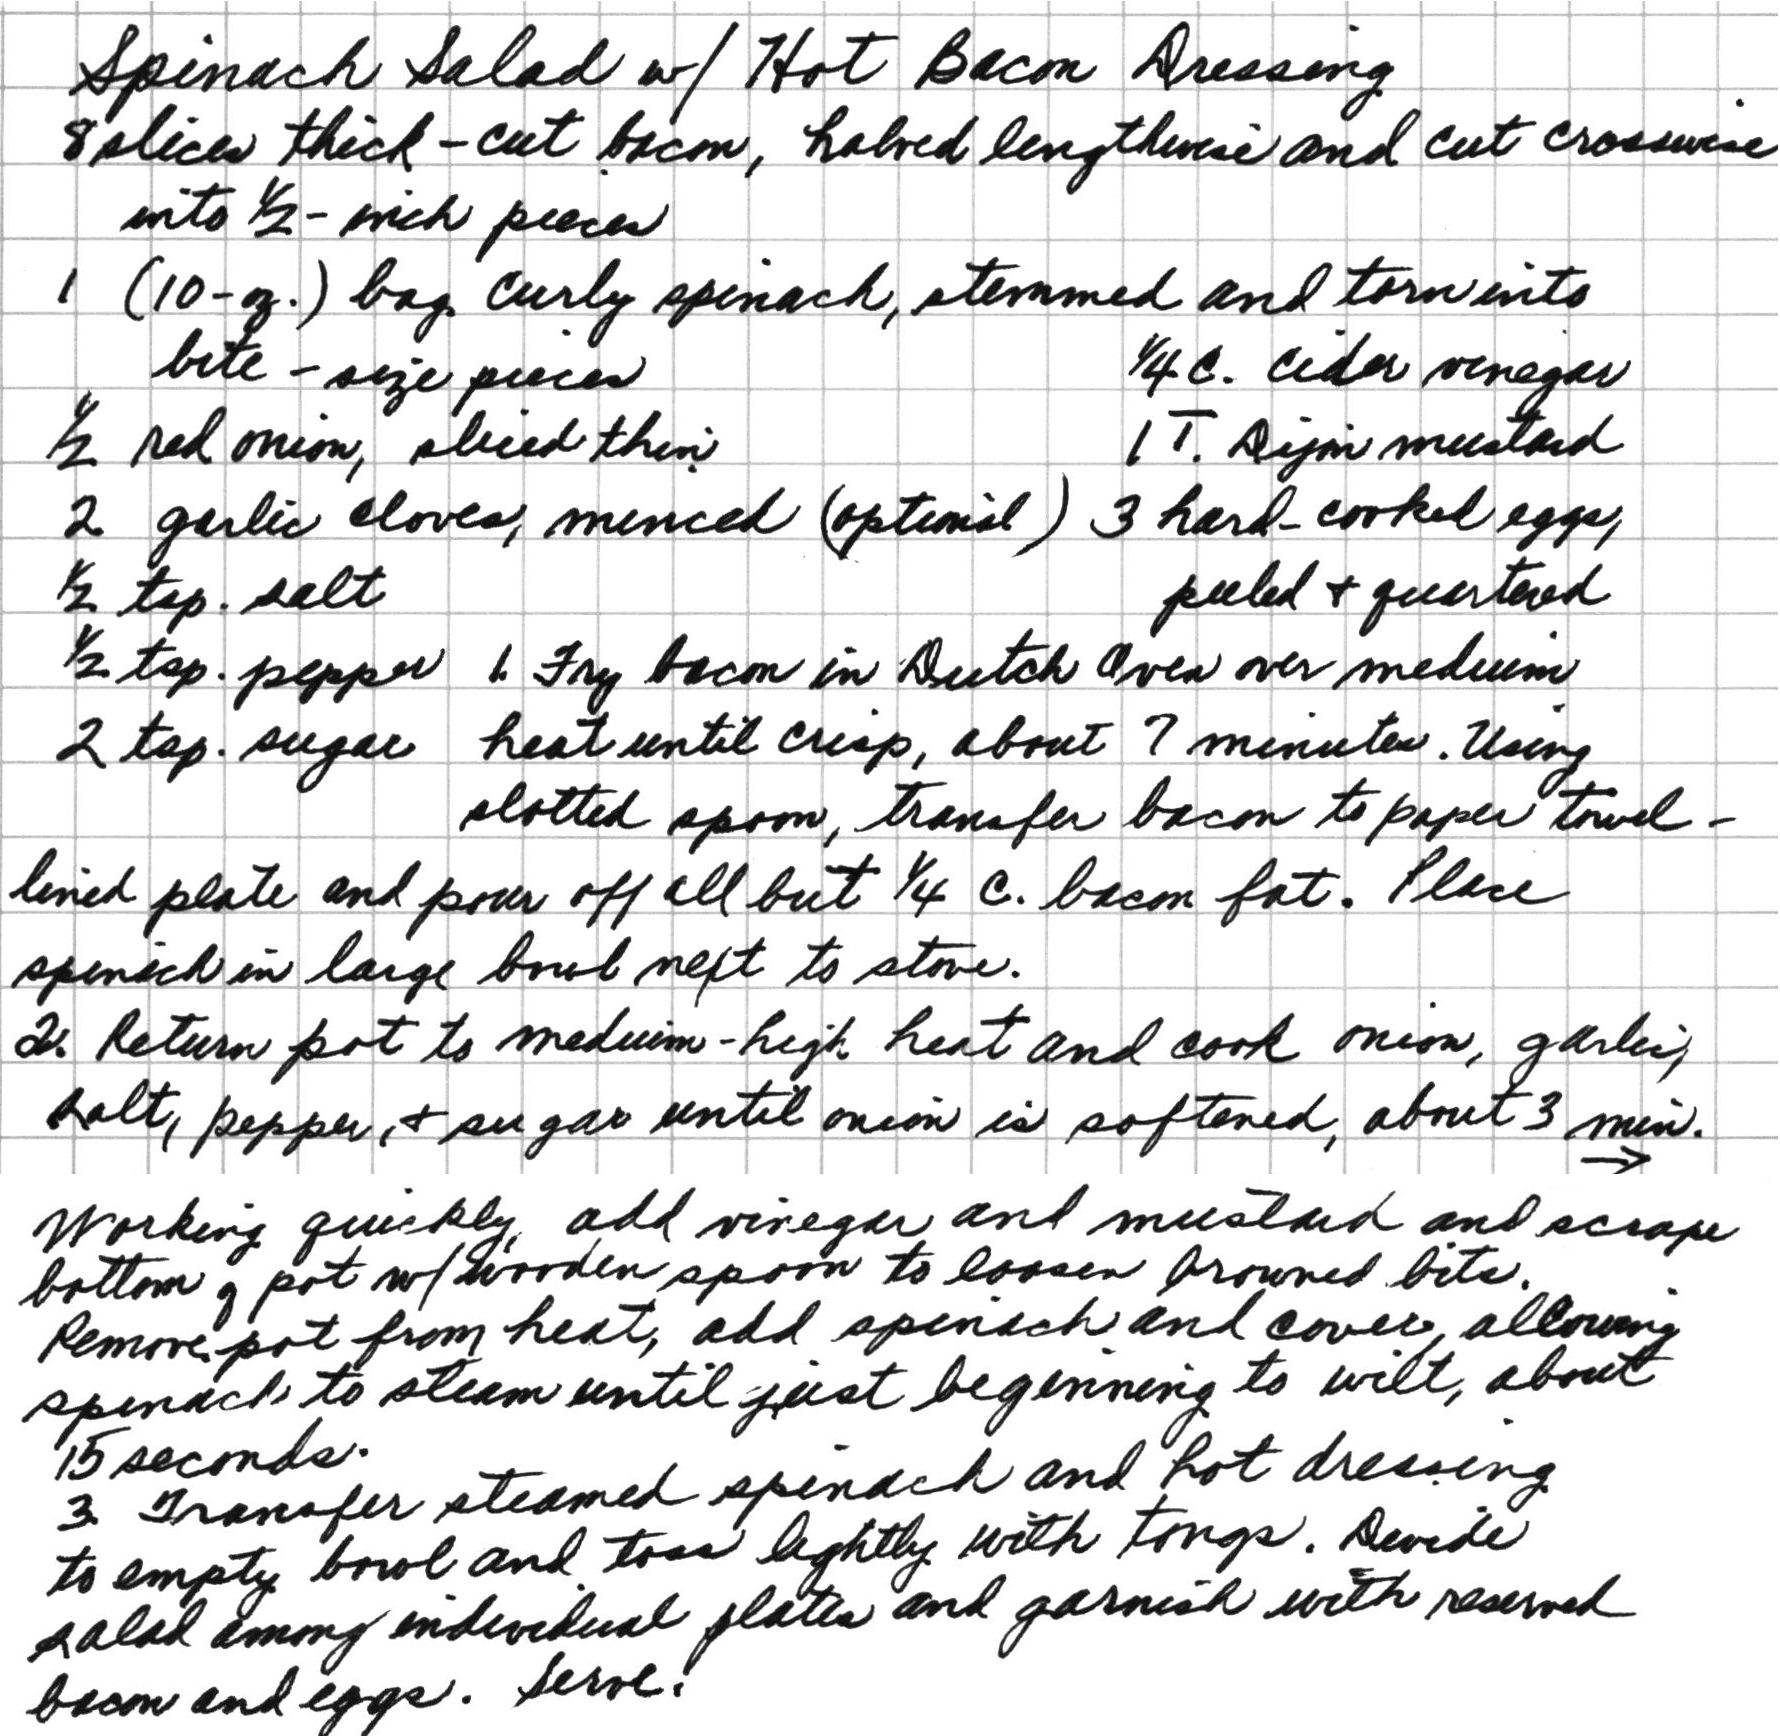 Spinach Salad w/ Hot Bacon Dressing
8 slices thick-cut bacon, halved lengthwise and cut crosswise
into 1/2-inch pieces
1 (10-oz.) bag curly spinach, stemmed and torn into
bite-size pieces
1/2 red onion, sliced thin
2 garlic cloves, minced (optional)
1/2 tsp. salt
1/2 tsp. pepper
2 tsp. sugar
1/4 c. cider vinegar
1 T. Dijon mustard
3 hard-cooked eggs,
peeled + quartered
1. Fry bacon in Dutch Oven over medium
heat until crisp, about 7 minutes. Using
slotted spoon, transfer bacon to paper towel-
lined plate and pour off all but 1/4 c. bacon fat. Place
spinach in large bowl next to stove.
2. Return pot to medium-high heat and cook onion, garlic,
salt, pepper, + sugar until onion is softened, about 3 min.
→
Working quickly, add vinegar and mustard and scrape
bottom of pot w/ wooden spoon to loosen browned bits.
Remove pot from heat, add spinach and cover, allowing
spinach to steam until just beginning to wilt, about
15 seconds.
3. Transfer steamed spinach and hot dressing
to empty bowl and toss lightly with tongs. Divide
salad among individual plates and garnish with reserved
bacon and eggs. Serve.